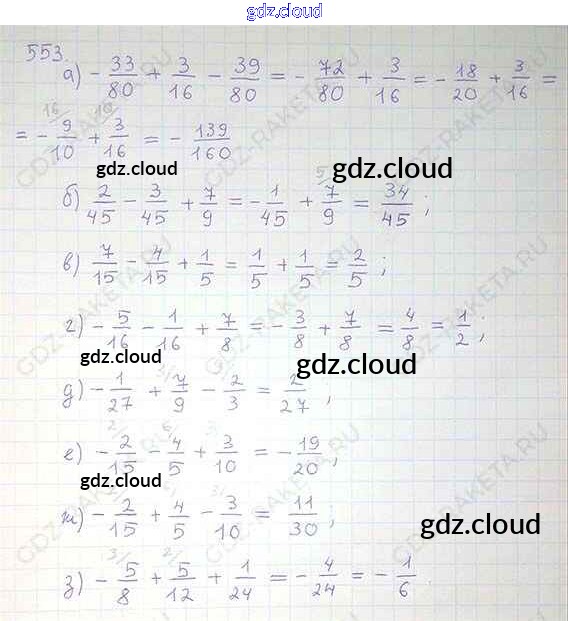 gdz.cloud
553.
а) - 33/80 + 3/16 - 39/80 = - 72/80 + 3/16 = - 18/20 + 3/16 =
= - 9/10 + 3/16 = - 139/160
gdz.cloud
gdz.cloud
б) 2/45 - 3/45 + 7/9 = - 1/45 + 7/9 = 34/45 ;
в) 7/15 - 4/15 + 1/5 = 1/5 + 1/5 = 2/5 ;
г) - 5/16 - 1/16 + 7/8 = - 3/8 + 7/8 = 4/8 = 1/2 ;
gdz.cloud
gdz.cloud
д) - 1/27 + 7/9 - 2/3 = 2/27 ;
е) - 2/15 - 4/5 + 3/10 = - 19/20 ;
gdz.cloud
ж) - 2/15 + 4/5 - 3/10 = 11/30 ;
gdz.cloud
з) - 5/8 + 5/12 + 1/24 = - 4/24 = - 1/6
GDZ-RAKETA.RU